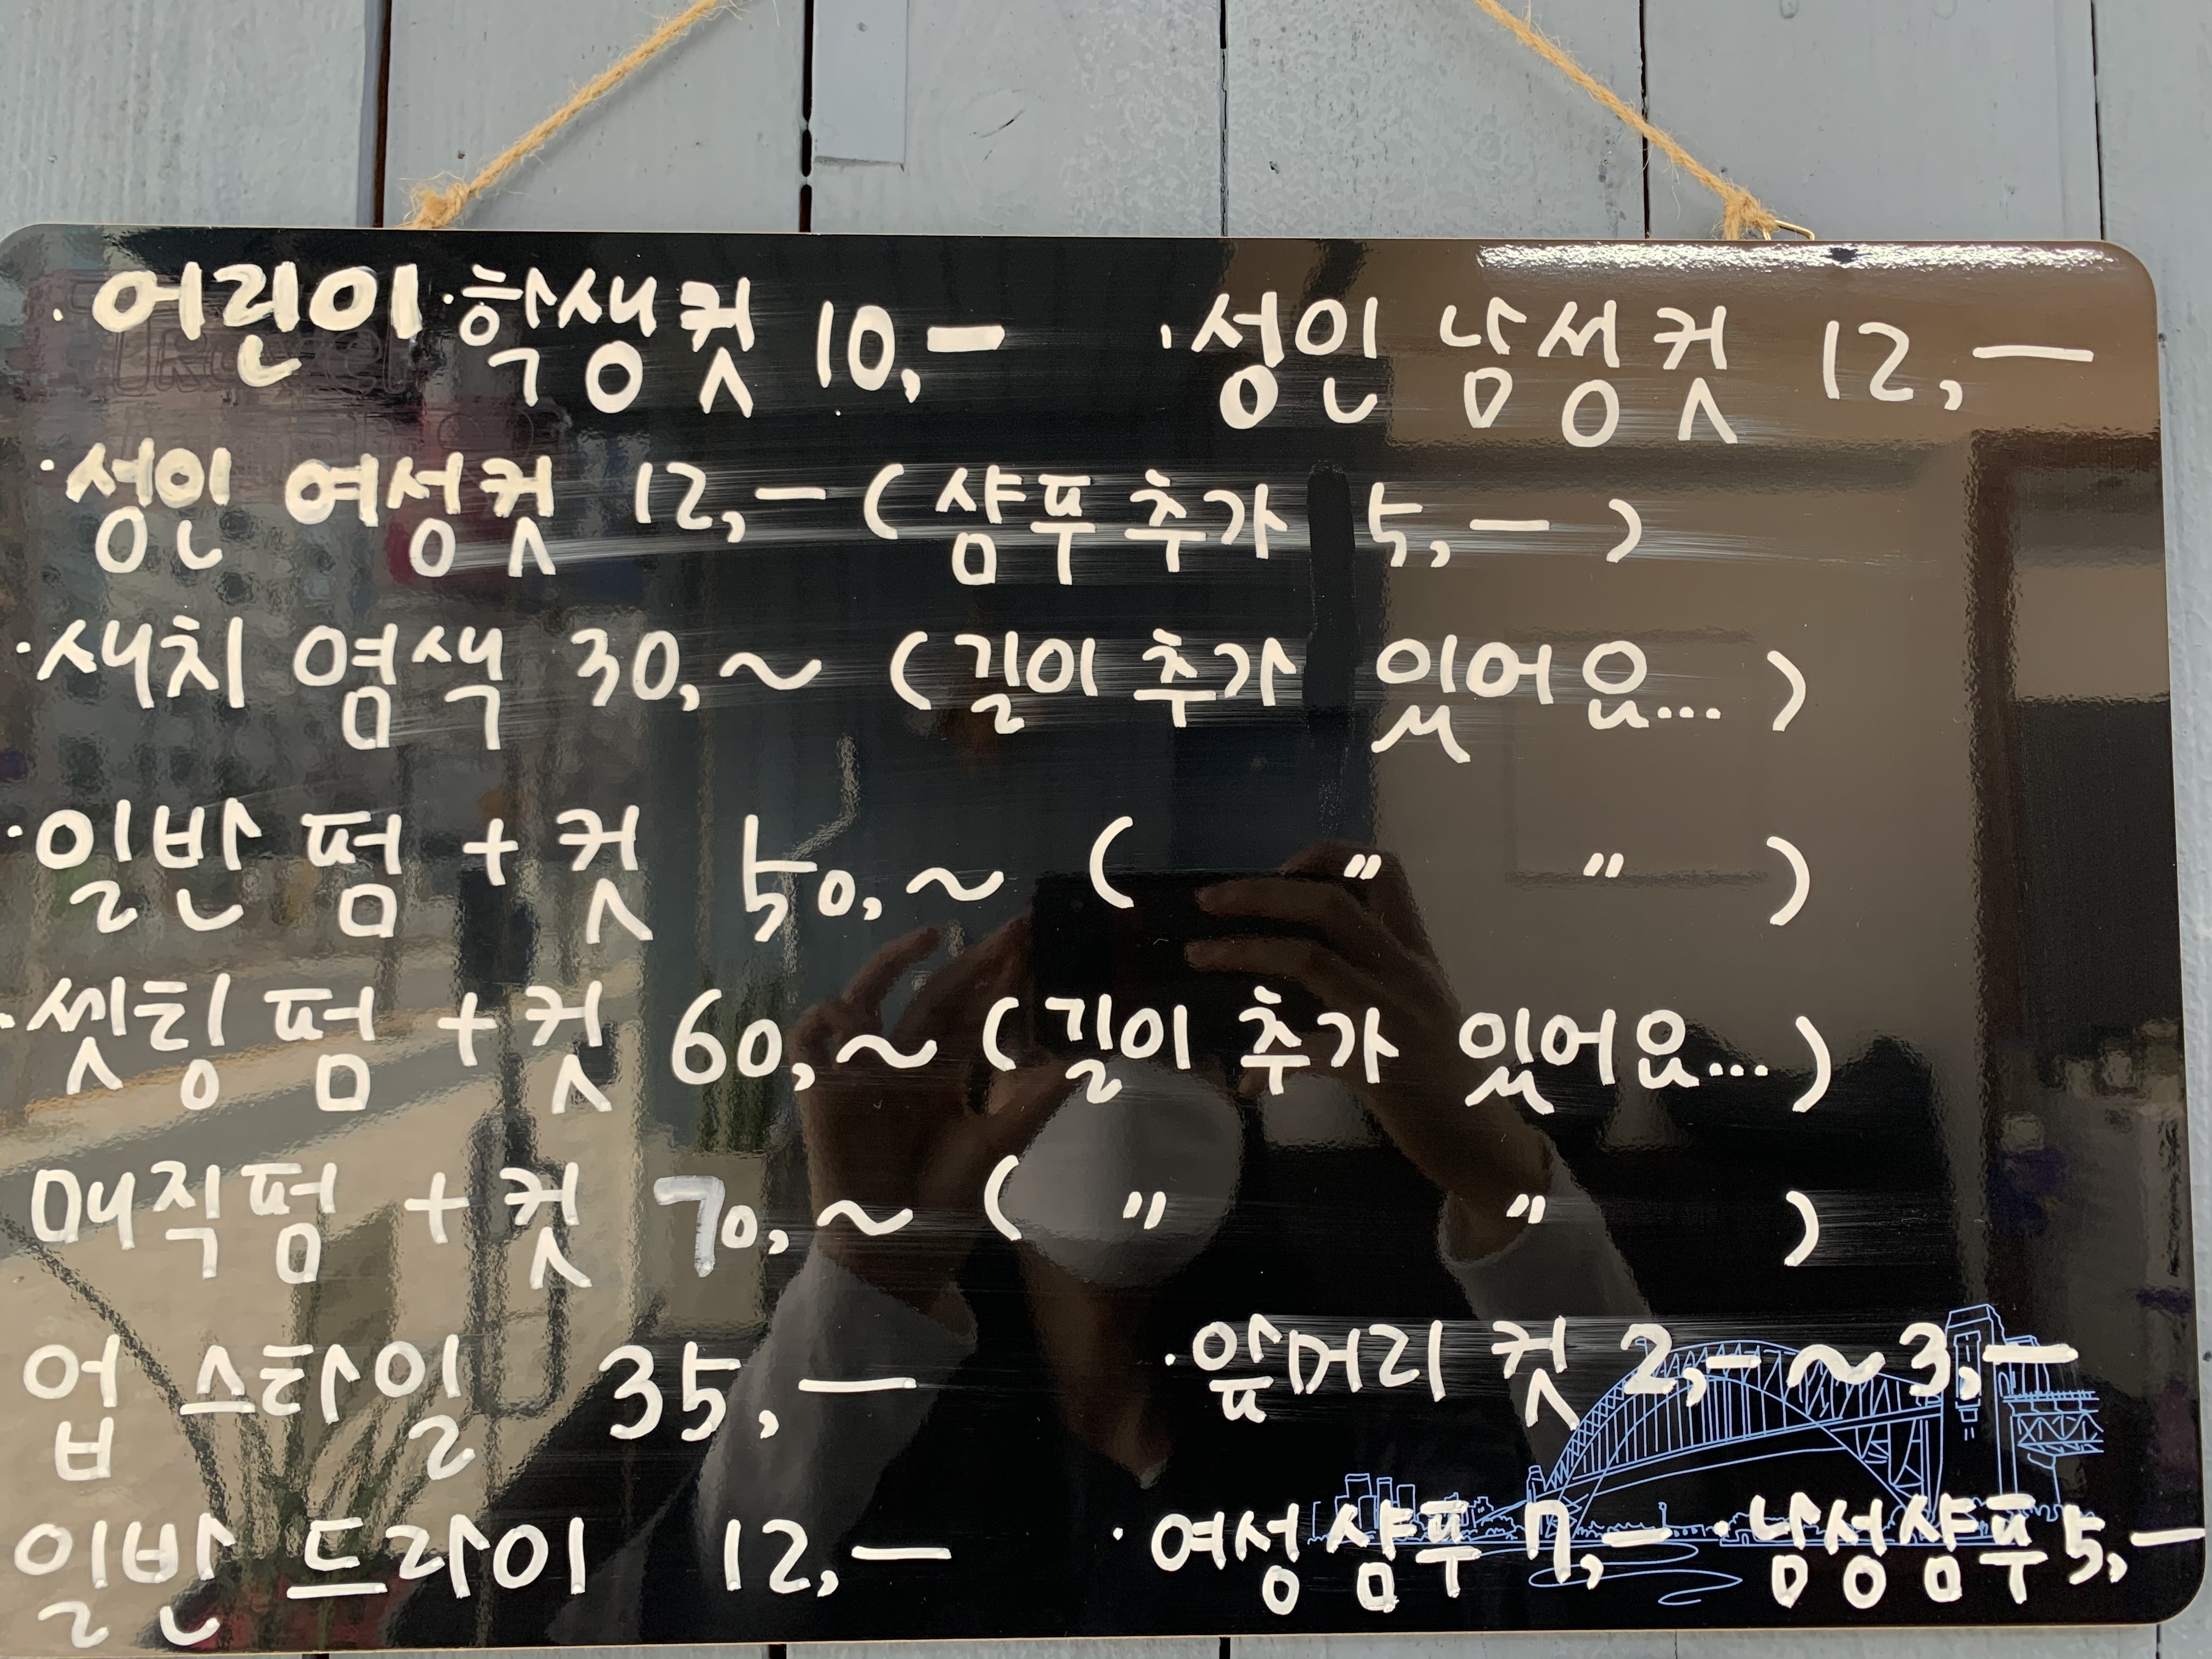 · 어린이·학생컷 10,— · 성인 남성컷 12,—
· 성인 여성컷 12,— ( 샴푸 추가 5,— )
· 새치 염색 30,~ ( 길이 추가 있어요... )
· 일반 펌 + 컷 50,~ ( " " )
· 셋팅 펌 + 컷 60,~ ( 길이 추가 있어요... )
매직펌 + 컷 70,~ ( " " )
업 스타일 35,— · 앞머리 컷 2,-~3,—
일반 드라이 12,— · 여성샴푸 7,— · 남성샴푸 5,—